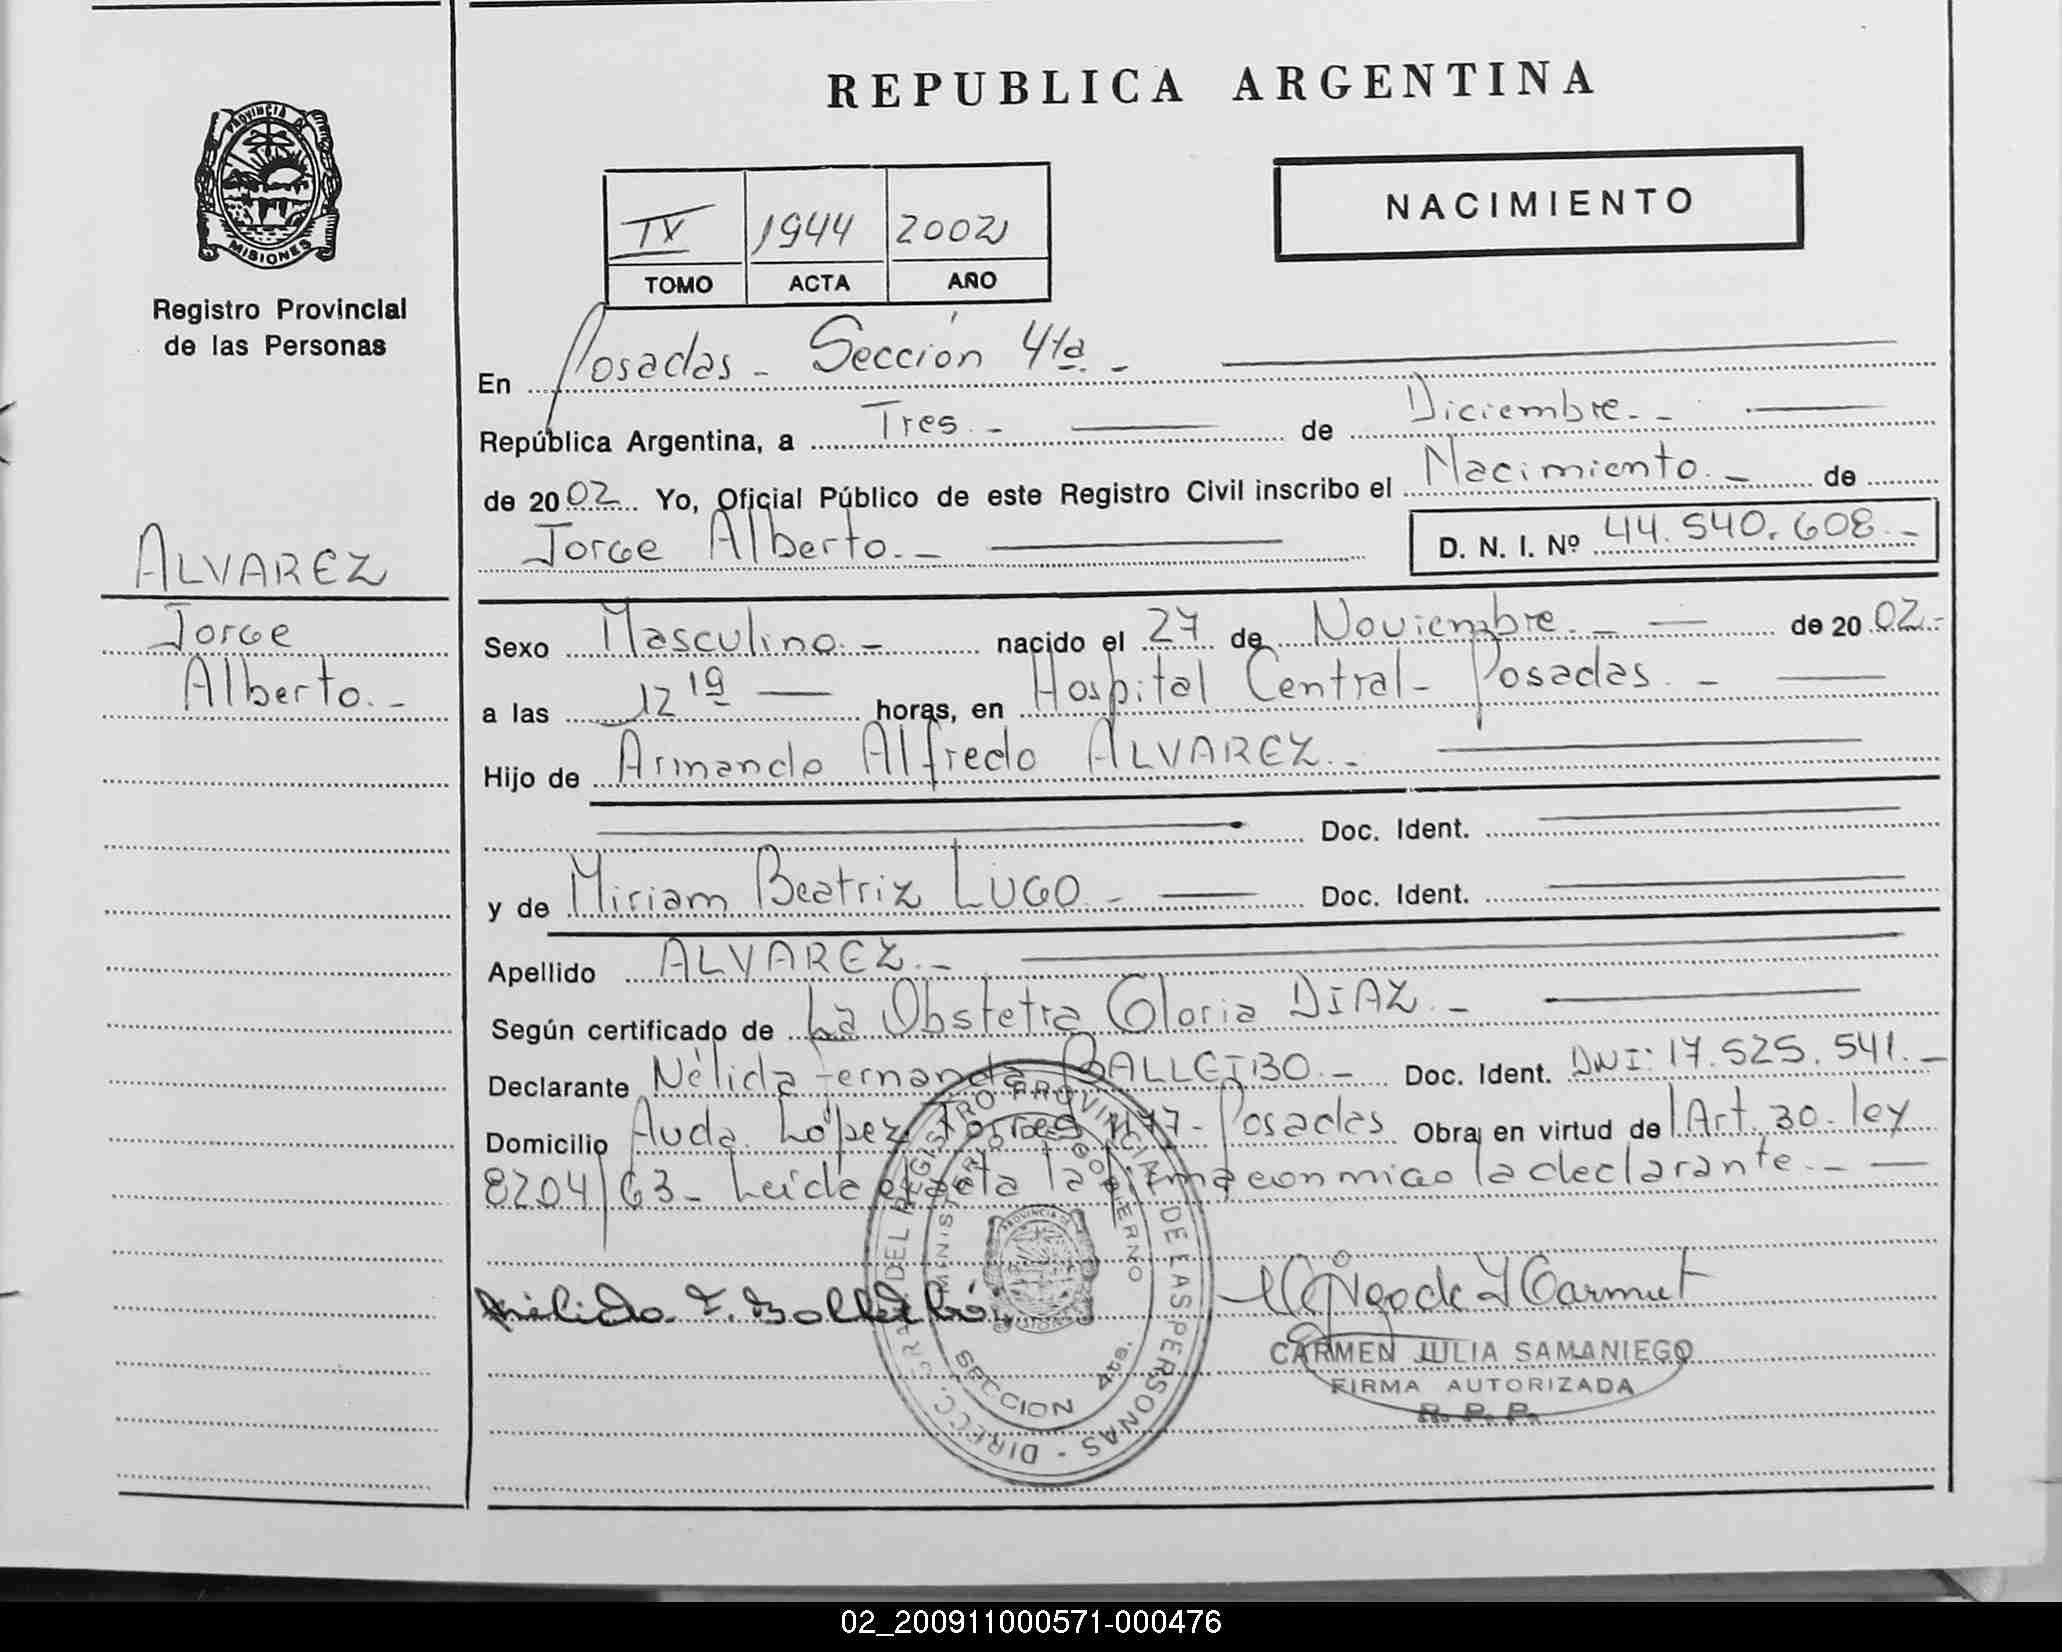 REPUBLICA ARGENTINA
PROVINCIA DE
MISIONES
Registro Provincial
de las Personas
NACIMIENTO
IV 1944 2002
TOMO ACTA AÑO
En Posadas - Sección 4ta. -
República Argentina, a Tres. - de Diciembre. -
de 2002 Yo, Oficial Público de este Registro Civil inscribo el Nacimiento. - de
Jorge Alberto. - D. N. I. Nº 44.540.608. -
ALVAREZ
Jorge
Alberto. -
Sexo Masculino. - nacido el 27 de Noviembre. - de 2002.-
a las 12 19 horas, en Hospital Central - Posadas. -
Hijo de Armando Alfredo ALVAREZ. -
Doc. Ident.
y de Miriam Beatriz LUGO. - Doc. Ident.
Apellido ALVAREZ. -
Según certificado de La Obstetra Gloria DIAZ. -
Declarante Nélida Fernanda BALLEIBO. - Doc. Ident. DNI: 17.525.541. -
Domicilio Avda. López Torres - Posadas Obra en virtud de Art. 30 - ley
8204/63 - Leída el acta la firma conmigo la declarante. -
DIRECC. GRAL. DEL REGISTRO PROVINCIAL DE LAS PERSONAS -
MINISTERIO DE GOBIERNO
SECCION 4ta.
CARMEN JULIA SAMANIEGO
FIRMA AUTORIZADA
R. P. P.
02_200911000571-000476